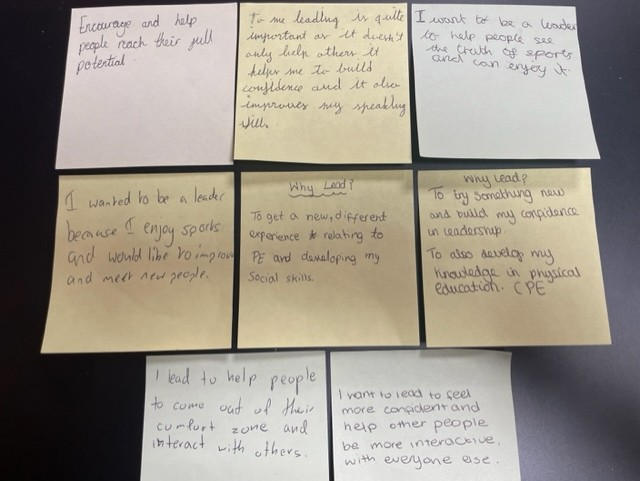 Encourage and help
people reach their full
potential
To me leading is quite
important as it doesn't
only help others it
helps me to build
confidence and it also
improves my speaking
skill.
I want to be a leader
to help people see
the truth of sports
and can enjoy it.
I wanted to be a leader
because I enjoy sports
and would like to improve
and meet new people.
Why Lead?
To get a new, different
experience relating to
PE and developing my
social skills.
Why Lead?
To try something new
and build my confidence
in leadership.
To also develop my
knowledge in physical
education. CPE
I lead to help people
to come out of their
comfort zone and
interact with others.
I want to lead to feel
more confident and
help other people
be more interactive,
with everyone else.